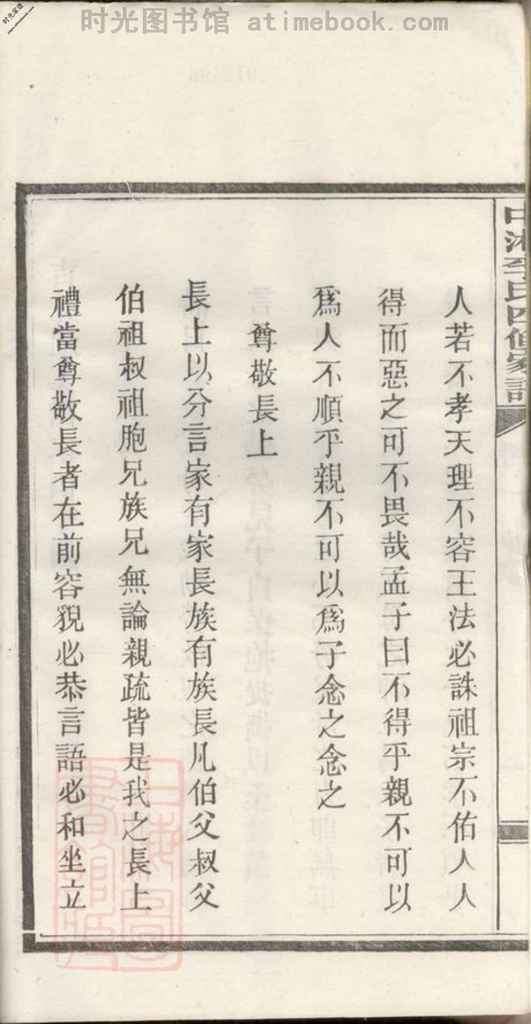 时光图书馆 atimebook.com
人若不孝天理不容王法必誅祖宗不佑人人
得而惡之可不畏哉孟子曰不得乎親不可以
爲人不順乎親不可以爲子念之念之
尊敬長上
長上以分言家有家長族有族長凡伯父叔父
伯祖叔祖胞兄族兄無論親疏皆是我之長上
禮當尊敬長者在前容貌必恭言語必和坐立